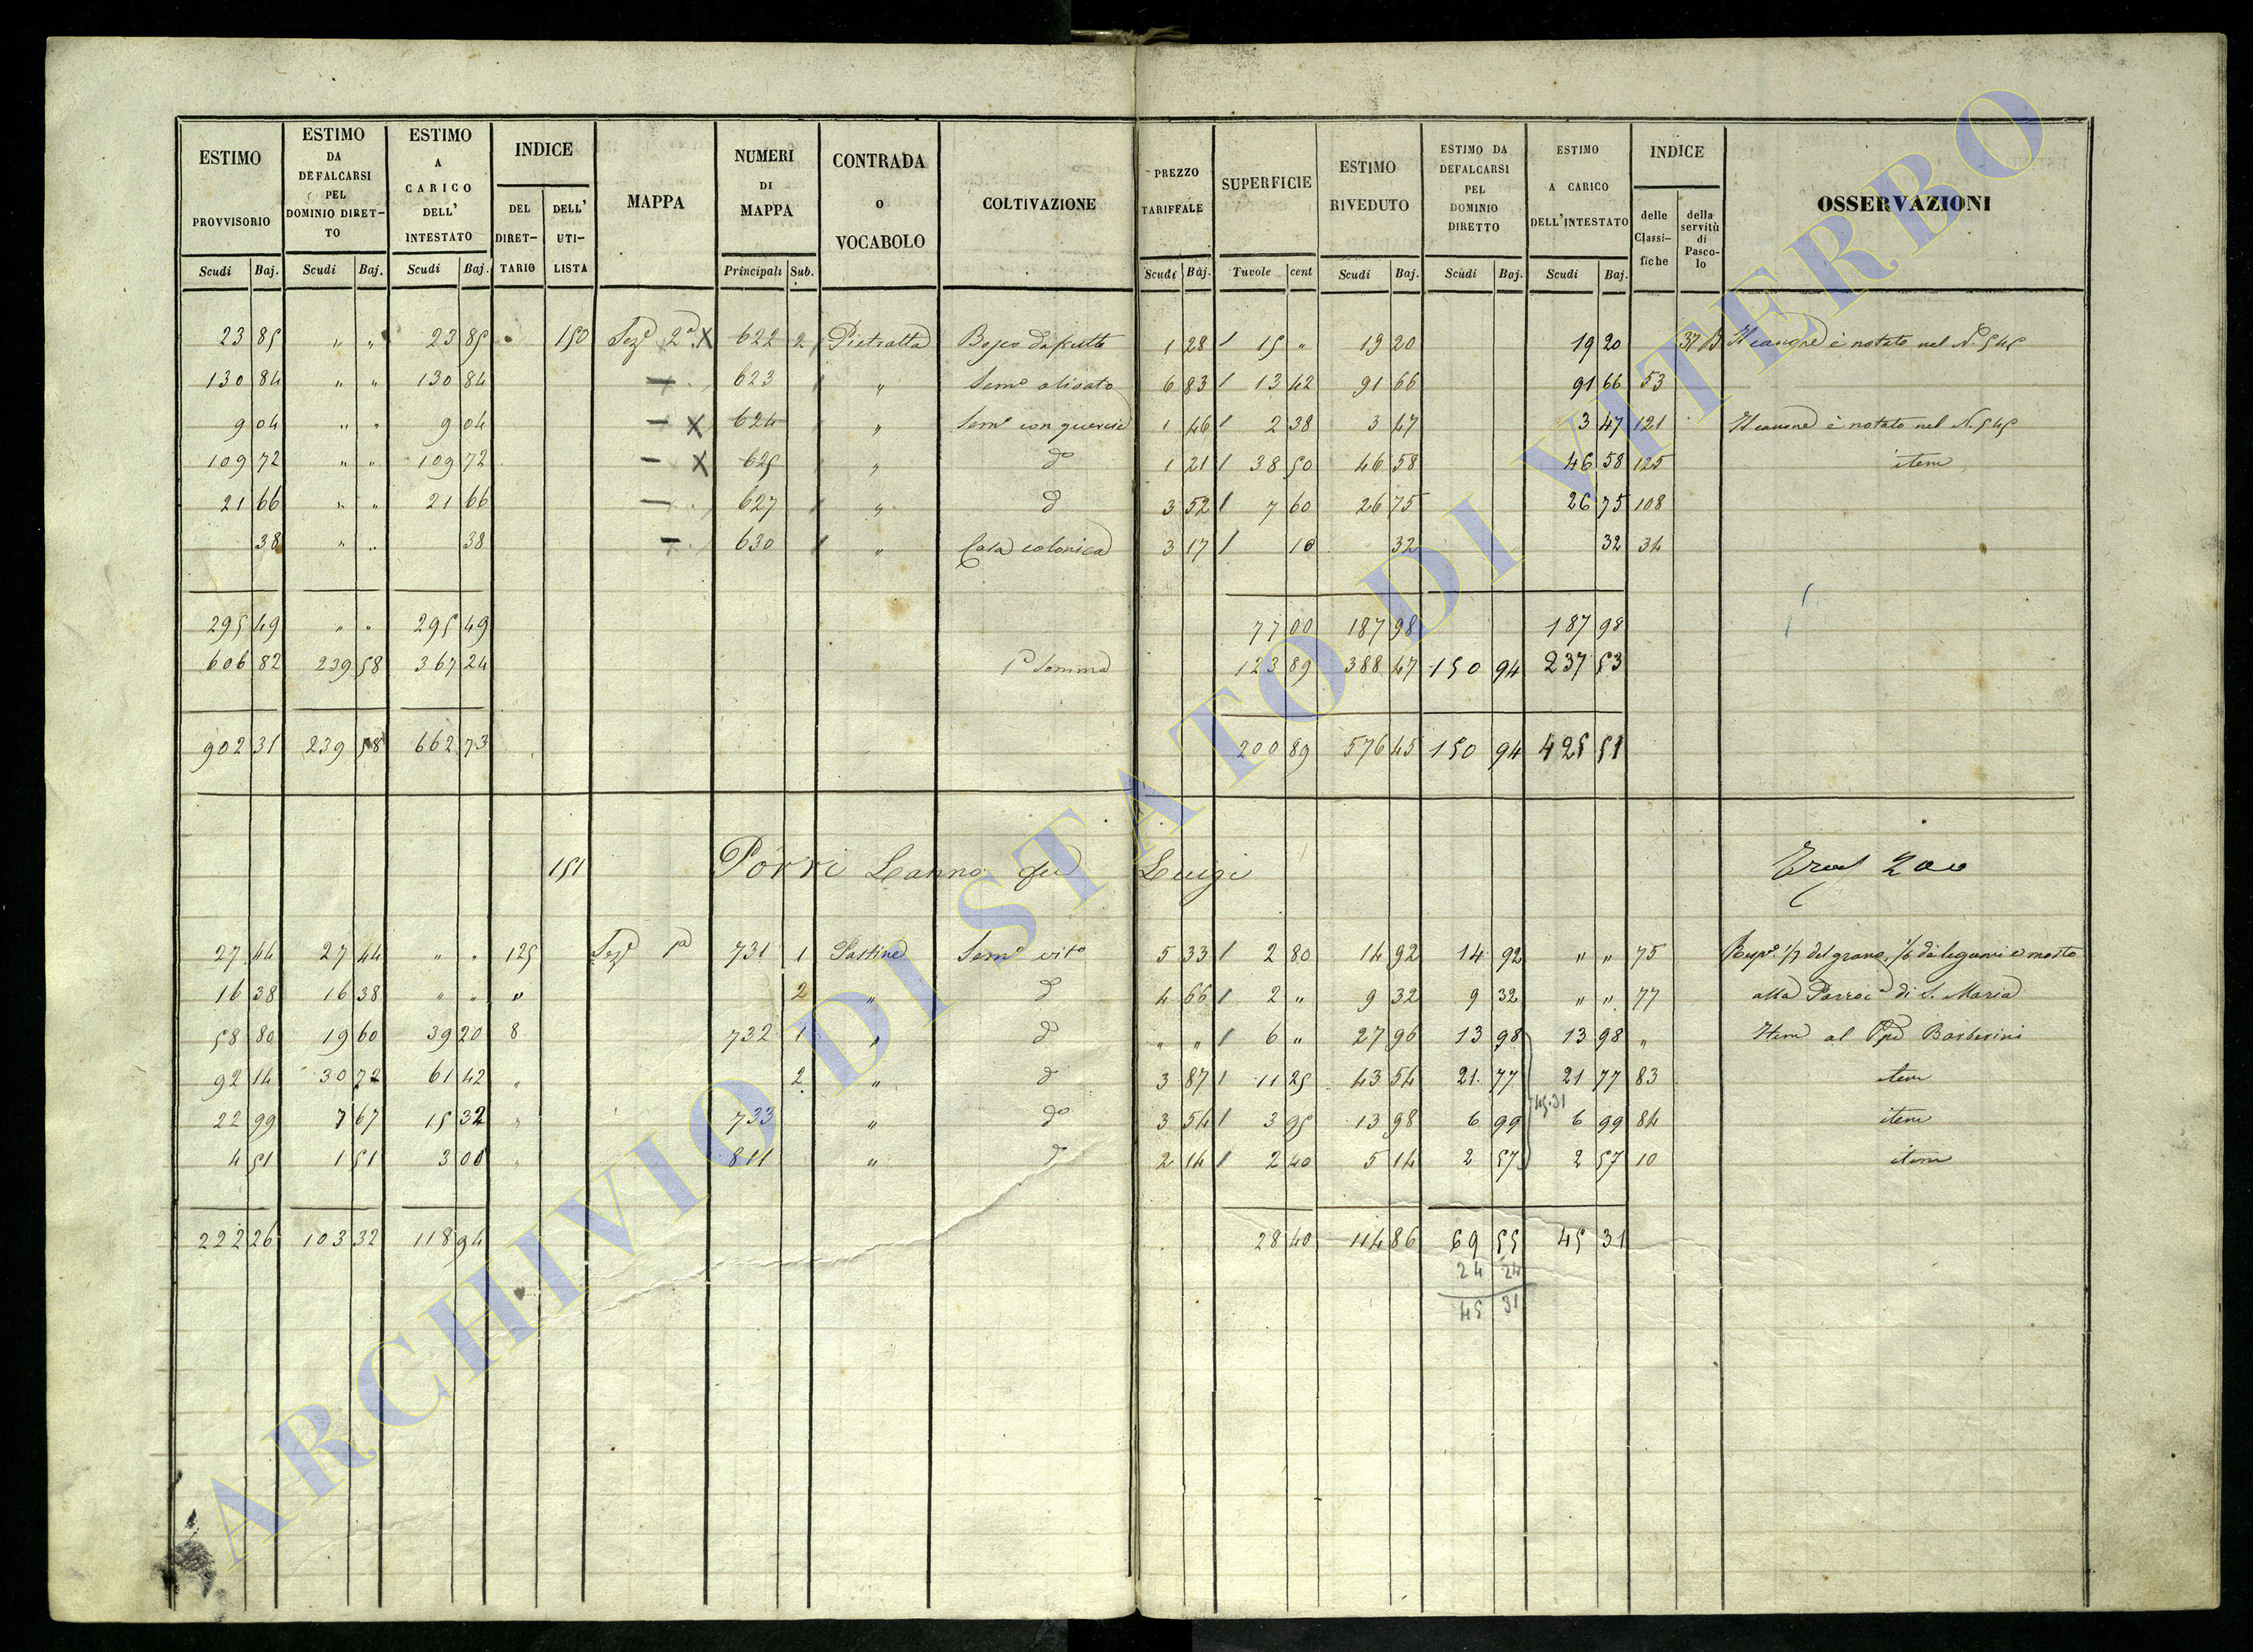 ESTIMO PROVVISORIO Scudi Baj. | ESTIMO DA DEFALCARSI PEL DOMINIO DIRETTO Scudi Baj. | ESTIMO A CARICO DELL' INTESTATO Scudi Baj. | INDICE DEL DIRETTARIO | DELL' UTILISTA | MAPPA | NUMERI DI MAPPA Principali Sub. | CONTRADA O VOCABOLO | COLTIVAZIONE | PREZZO TARIFFALE Scudi Baj. | SUPERFICIE Tavole cent | ESTIMO RIVEDUTO Scudi Baj. | ESTIMO DA DEFALCARSI PEL DOMINIO DIRETTO Scudi Baj. | ESTIMO A CARICO DELL'INTESTATO Scudi Baj. | INDICE delle Classifiche | della servitù di Pascolo | OSSERVAZIONI
23 85 " " 23 85 150 Sezᵉ 2ª X 622 2 Pietratta Bosco da frutto 1 28 / 15 " 19 20 19 20 37 Il canone è notato nel N. 545
130 84 " " 130 84 — 623 " Semᵒ olivato 6 83 / 13 42 91 66 91 66 53
9 04 " " 9 04 — X 624 " Semᵒ con quercie 1 46 / 2 38 3 47 3 47 121 Il canone è notato nel N. 545
109 72 " " 109 72 — X 625 " dᵒ 1 21 / 38 50 46 58 46 58 125 item
21 66 " " 21 66 — 627 " dᵒ 3 52 / 7 60 26 75 26 75 108
38 " " 38 — 630 " Casa colonica 3 17 / 10 32 32 34
295 49 " " 295 49 77 00 187 98 187 98
606 82 239 58 367 24 1ª Somma 123 89 388 47 150 94 237 53
902 31 239 58 662 73 200 89 576 45 150 94 425 51
151 Porri Luigi
27 44 27 44 " " 125 Sezᵉ 1ª 731 1 Pastine Semᵒ vitᵒ 5 33 / 2 80 14 92 14 92 " " 75 Rispᵉ 1/7 del grano, 1/6 di legumi e mosto
16 38 16 38 " " " 2 " dᵒ 4 66 / 2 " 9 32 9 32 " " 77 alla Parrocª di S. Maria
58 80 19 60 39 20 8 732 1 " dᵒ " " / 6 " 27 96 13 98 13 98 " Item al Barberini
92 14 30 72 61 42 " 2 " dᵒ 3 87 / 11 25 43 54 21 77 21 77 83 item
22 99 7 67 15 32 " 733 " dᵒ 3 54 / 3 95 13 98 6 99 45.31 6 99 84 item
4 51 1 51 3 00 " 811 " dᵒ 2 14 / 2 40 5 14 2 57 2 57 10 item
222 26 103 32 118 94 28 40 114 86 69 55 45 31
24 24
45 31
ARCHIVIO DI STATO DI VITERBO